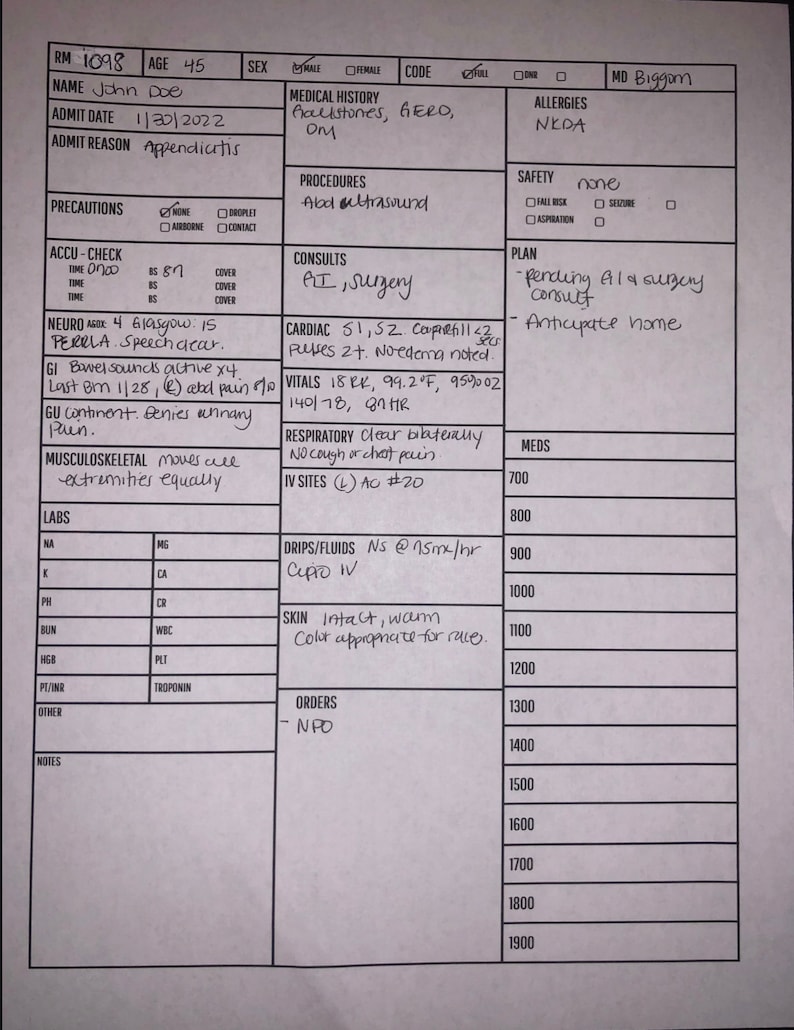 RM 1098 AGE 45 SEX MALE FEMALE CODE FULL DNR MD Biggom
NAME John Doe
ADMIT DATE 1/30/2022
ADMIT REASON Appendicitis
PRECAUTIONS NONE DROPLET
AIRBORNE CONTACT
ACCU - CHECK
TIME 0700 BS 87 COVER
TIME BS COVER
TIME BS COVER
NEURO A&OX: 4 Glasgow: 15
PERRLA. Speech clear.
GI Bowel sounds active x4
Last Bm 1/28, (R) abd pain 8/10
GU Continent. Denies urinary
Pain.
MUSCULOSKELETAL moves all
extremities equally
LABS
NA MG
K CA
PH CR
BUN WBC
HGB PLT
PT/INR TROPONIN
OTHER
NOTES
MEDICAL HISTORY
Gallstones, GERD,
DM
PROCEDURES
Abd ultrasound
CONSULTS
GI, surgery
CARDIAC S1, S2. Cap refill <2
secs
pulses 2+. No edema noted.
VITALS 18 RR, 99.2°F, 95% O2
140/78, 87 HR
RESPIRATORY Clear bilaterally
NO cough or chest pain.
IV SITES (L) AC #20
DRIPS/FLUIDS NS @ 75mL/hr
Cipro IV
SKIN Intact, warm
Color appropriate for race.
ORDERS
- NPO
ALLERGIES
NKDA
SAFETY none
FALL RISK SEIZURE
ASPIRATION
PLAN
- pending GI & surgery
consult
- Anticipate home
MEDS
700
800
900
1000
1100
1200
1300
1400
1500
1600
1700
1800
1900